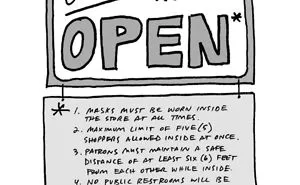 OPEN*
* 1. MASKS MUST BE WORN INSIDE
THE STORE AT ALL TIMES.
2. MAXIMUM LIMIT OF FIVE (5)
SHOPPERS ALLOWED INSIDE AT ONCE.
3. PATRONS MUST MAINTAIN A SAFE
DISTANCE OF AT LEAST SIX (6) FEET
FROM EACH OTHER WHILE INSIDE.
4. NO PUBLIC RESTROOMS WILL BE